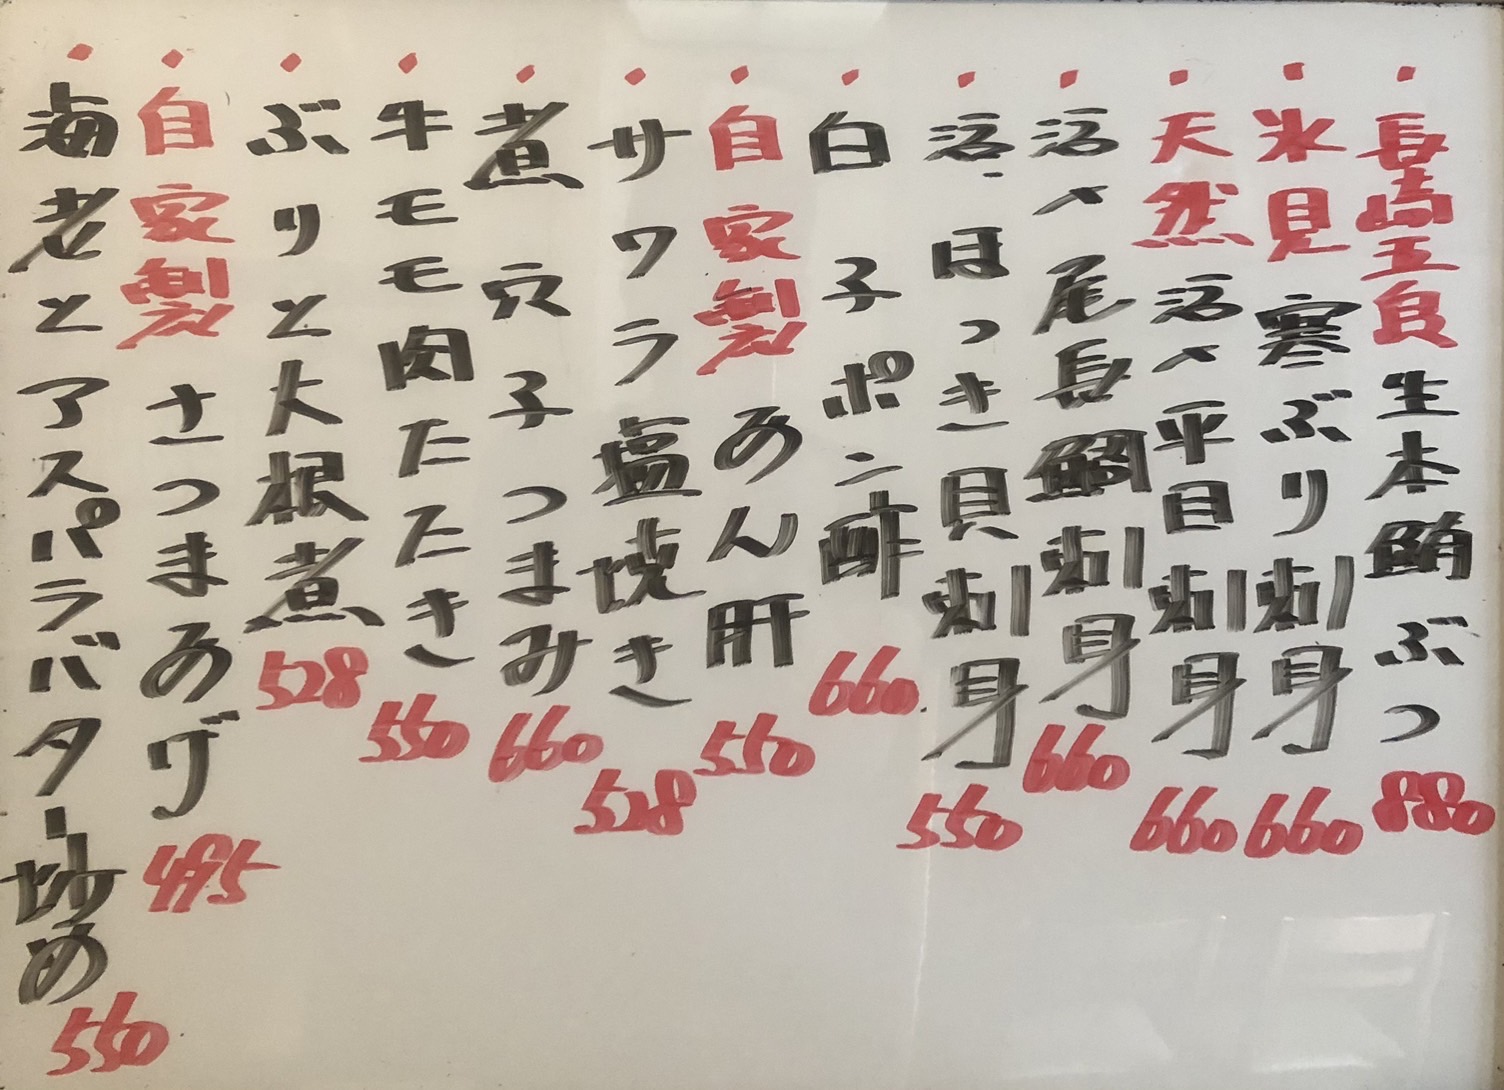 ・長崎五島 生本鮪ぶつ 880
・氷見 寒ぶり刺身 660
・天然 活〆平目刺身 660
・活〆尾長鯛刺身 660
・活ほっき貝刺身 550
・白子ポン酢 660
・自家製 あん肝 550
・サワラ塩焼き 528
・煮穴子つまみ 660
・牛モモ肉たたき 550
・ぶりと大根煮 528
・自家製 さつまあげ 495
・海老とアスパラバター炒め 550